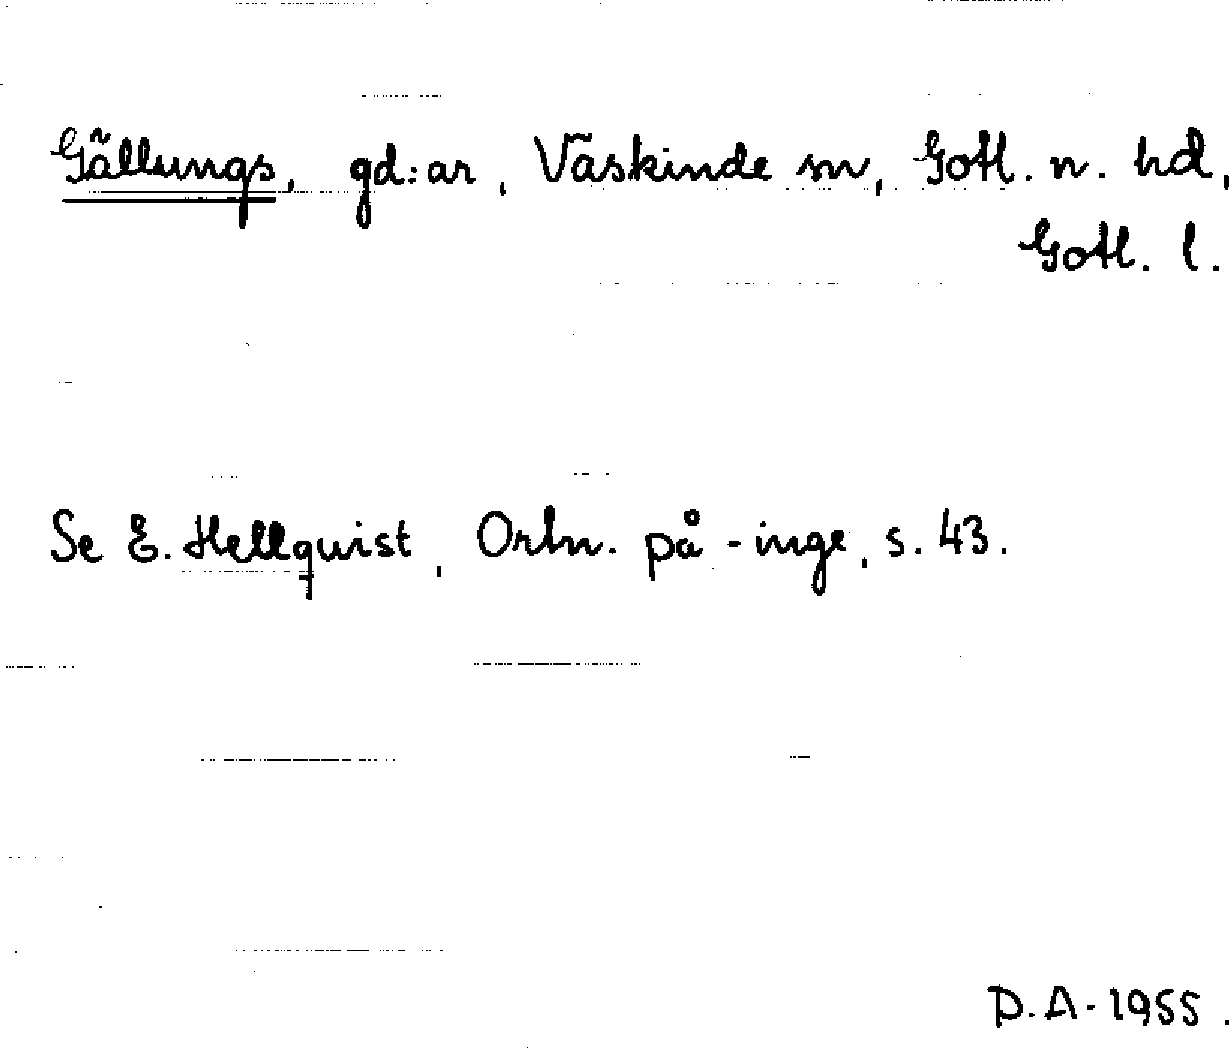 Gällungs, gd:ar, Väskinde sn, Gotl. n. hd,
Gotl. l.
Se E. Hellquist, Ortn. på -inge, s. 43.
D. A - 1955.